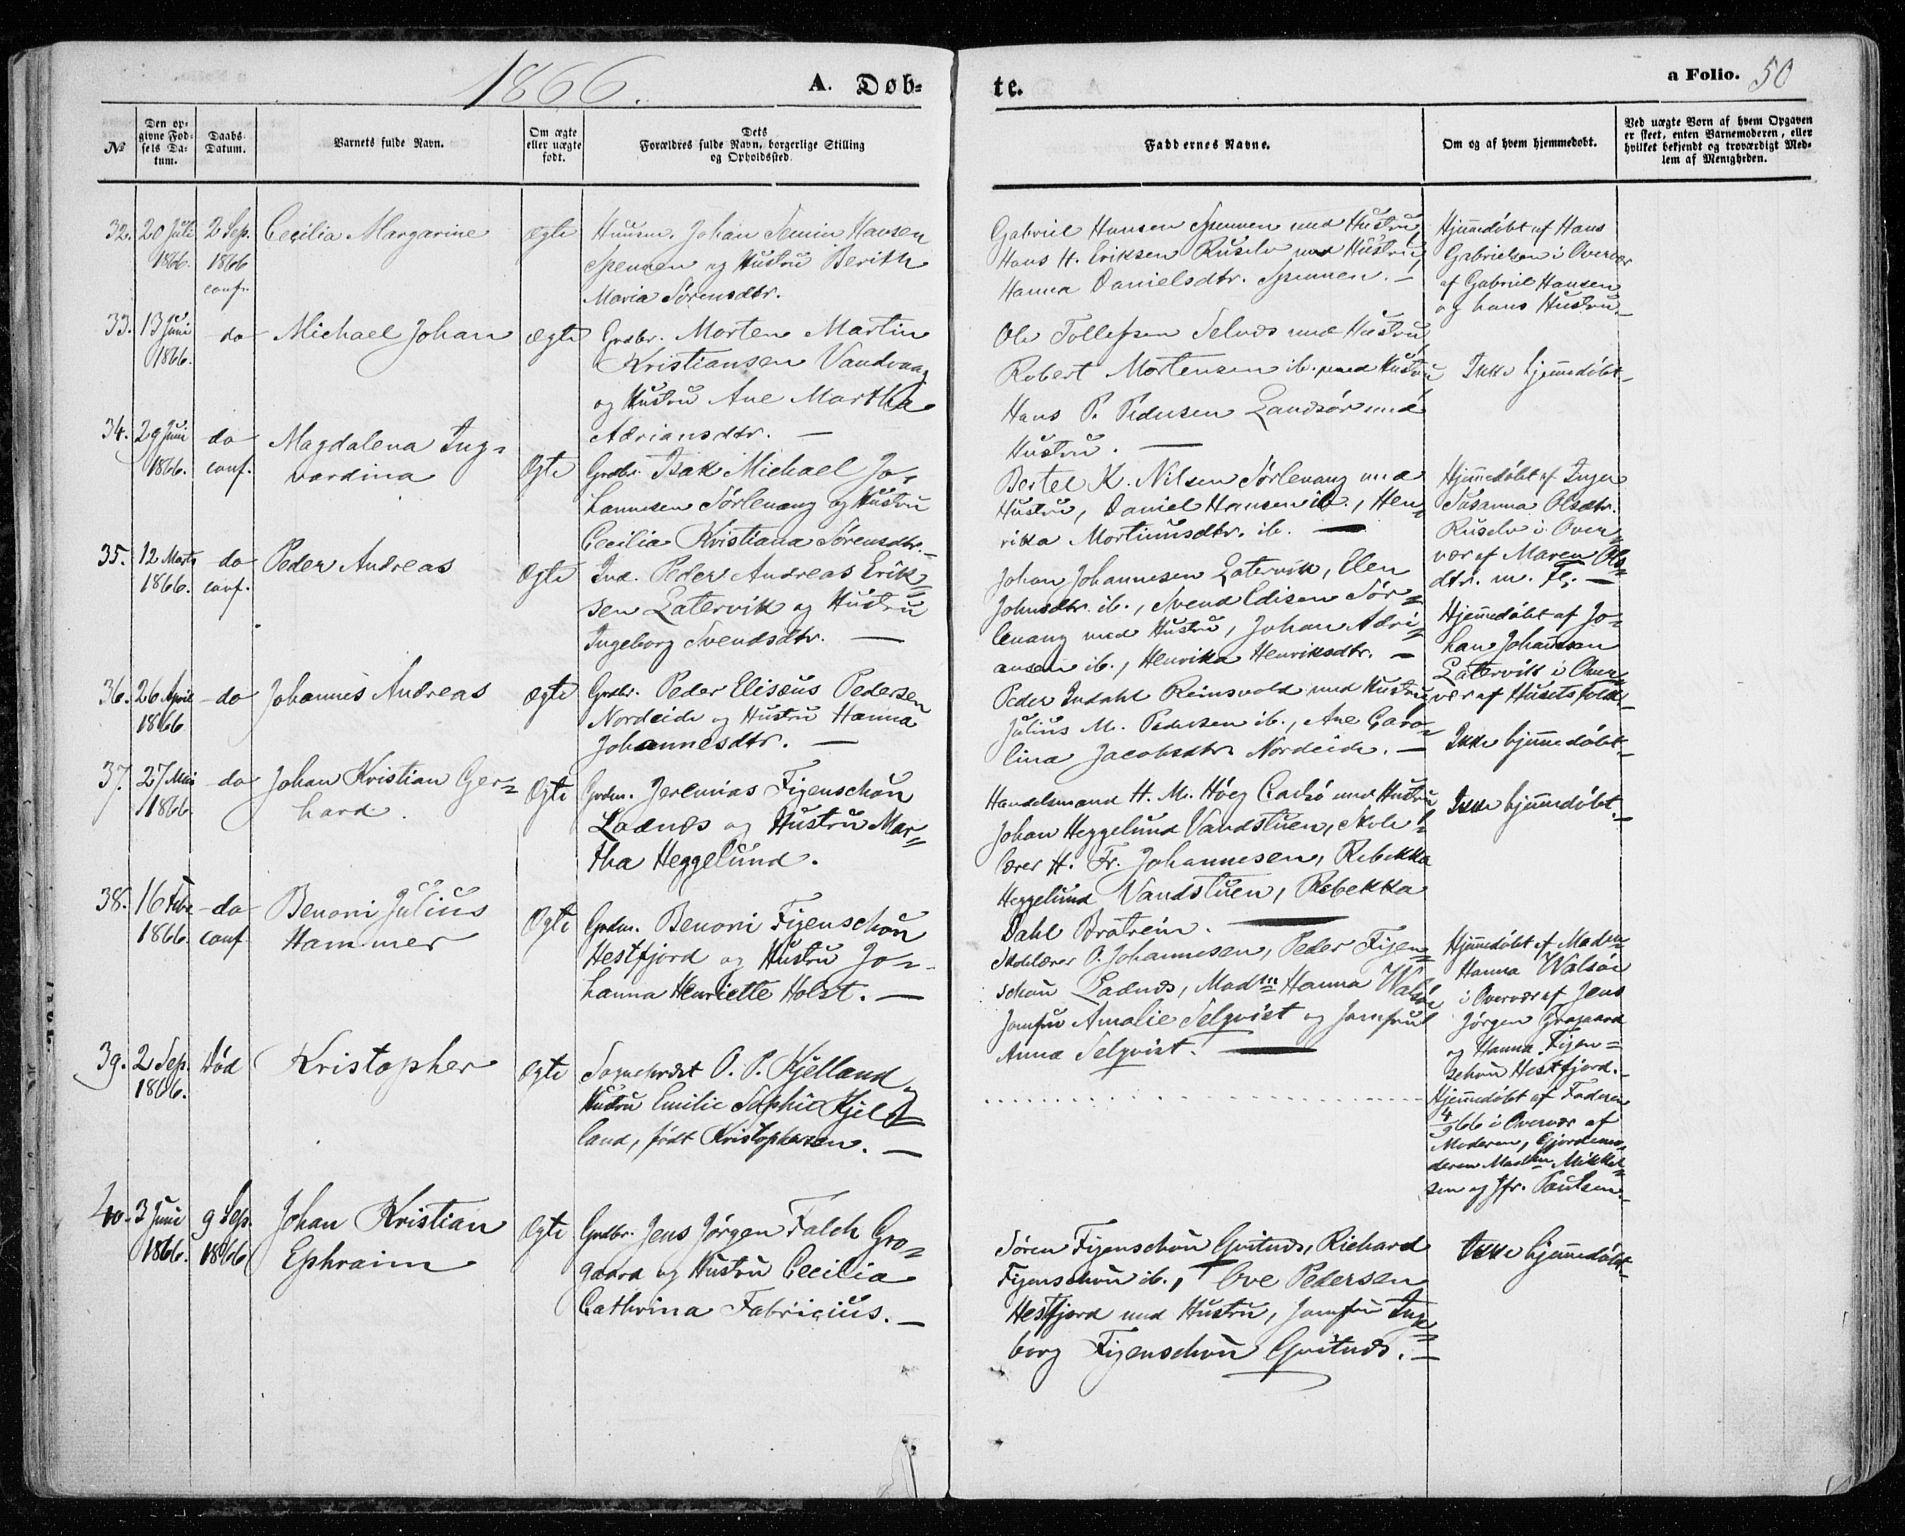 1866.
A. Døb-
te.
a Folio. 50
No
Den op-
givne Fød-
sels Da-
tum.
Daabs-
Datum.
Barnets fulde Navn.
Om ægte
eller uægte
født.
Dets
Forældres fulde Navn, borgerlige Stilling
og Opholdssted.
Faddernes Navne.
Om og af hvem hjemmedøbt.
Ved uægte Børn af hvem Opgaven
er skeet, enten Barnemoderen, eller
hvilket bekjendt og troværdigt Med-
lem af Menigheden.
32.
20 Juli
1866.
2 Sep.
1866
conf.
Cecilia Margarine
Ægte
Huusm. Johan Hansen
Spennen og Hustru Berith
Maria Sørensdtr.
Gabriel Hansen Spennen med Hustru,
Hans H. Eriksen Ruselv med Hustru,
Hanna Danielsdtr. Spennen. —
Hjemmedøbt af Hans
Gabrielsen i Overvær
af Gabriel Hansen
og hans Hustru.
33.
13 Juni
1866.
do
Michael Johan
Ægte
Grdbr. Morten Martin
Kristiansen Vandvaag
og Hustru Ane Martha
Adriansdtr. —
Ole Tollefsen Selnæs med Hustru,
Robert Mortensen ib. med Hustru
Hans P. Pedersen Landsør med
Hustru. —
Ikke hjemmedøbt
34.
29 Juni
1866.
do
conf.
Magdalena Ing-
vardina
Ægte
Grdbr. Isak Michael Jo-
hannesen Sørlenang og Hustru
Cecilia Kristiana Sørensdtr.
Bertel K. Nilsen Sørlenang med
Hustru, Daniel Hansen ib., Hen-
rika Mortinusdtr. ib. —
Hjemmedøbt af Inger
Susanna Olsdtr.
Ruselv i Over-
vær af Maren Ols-
dtr. m. Fl. —
35.
12 Marts
1866.
do
conf.
Peder Andreas
Ægte
Ind. Peder Andreas Erik-
sen Latervik og Hustru
Ingeborg Svendsdtr. —
Johan Johannesen Latervik, Elen
Johnsdtr. ib., Svend Edisen Sør-
lenang med Hustru, Johan Adri-
ansen ib., Henrika Henriksdtr. —
Hjemmedøbt af Jo-
han Johannesen
Latervik i Over-
vær af Husets folk
36.
26 April
1866
do
Johannes Andreas
Ægte
Grdbr. Peder Elisæus Pedersen
Nordeide og Hustru Hanna
Johannesdtr. —
Peder Indahl Reinsvold med Hustru,
Julius M. Pedersen ib., Ane Caro-
lina Jacobsdtr. Nordeide. —
Ikke hjemmedøbt
37.
27 Mai
1866
do
Johan Kristian Ger-
hard
Ægte
Grdm. Jeremias Figenschou
Ladnæs og Hustru Mar-
tha Heggelund.
Handelsmand H. M. Høeg Carlsø med Hustru
Johan Heggelund Vandstuen, Skole-
lærer H. Fr. Johannesen, Rebekka
Heggelund Vandstuen, Rebekka
Dahl Bratrein. —
Ikke hjemmedøbt
38.
16 Febr.
1866.
do
conf
Benoni Julius
Hammer
Ægte
Grdm. Benoni Figenschou
Hestfjord og Hustru Jo-
hanna Henriette Holst. —
Skolelærer O. Johannesen, Peder Figen-
schou Ladnæs, Madm Hanna Walsøe
Jomfru Amalie Selqvist og Jomfru
Anna Selqvist. —
Hjemmedøbt af Madm
Hanna Walsøe
i Overvær af Jens
Jørgen Grogaard
og Hanna Figen-
schou Hestfjord.
39.
2 Sep.
1866.
Død
Kristopher
Ægte
Sogneprest O. P. Kjelland og
Hustru Emilie Sophie Kjel-
land, født Kristophersen. —
Hjemmedøbt af Faderen
4/9 66 i Overvær af
Moderen, Gjordemo-
deren Madm Mikkel-
sen og Jfr. Poulsen
40.
3 Juni
1866.
9 Sep.
1866
Johan Kristian
Ephraim
Ægte
Grdbr. Jens Jørgen Falch Gro-
gaard og Hustru Cecilia
Cathrina Fabricius. —
Søren Figenschou Gvitnæs, Richard
Figenschou ib., Ove Pedersen
Hestfjord med Hustru, Jomfru Inge-
borg Figenschou Gvitnæs. —
Ikke hjemmedøbt